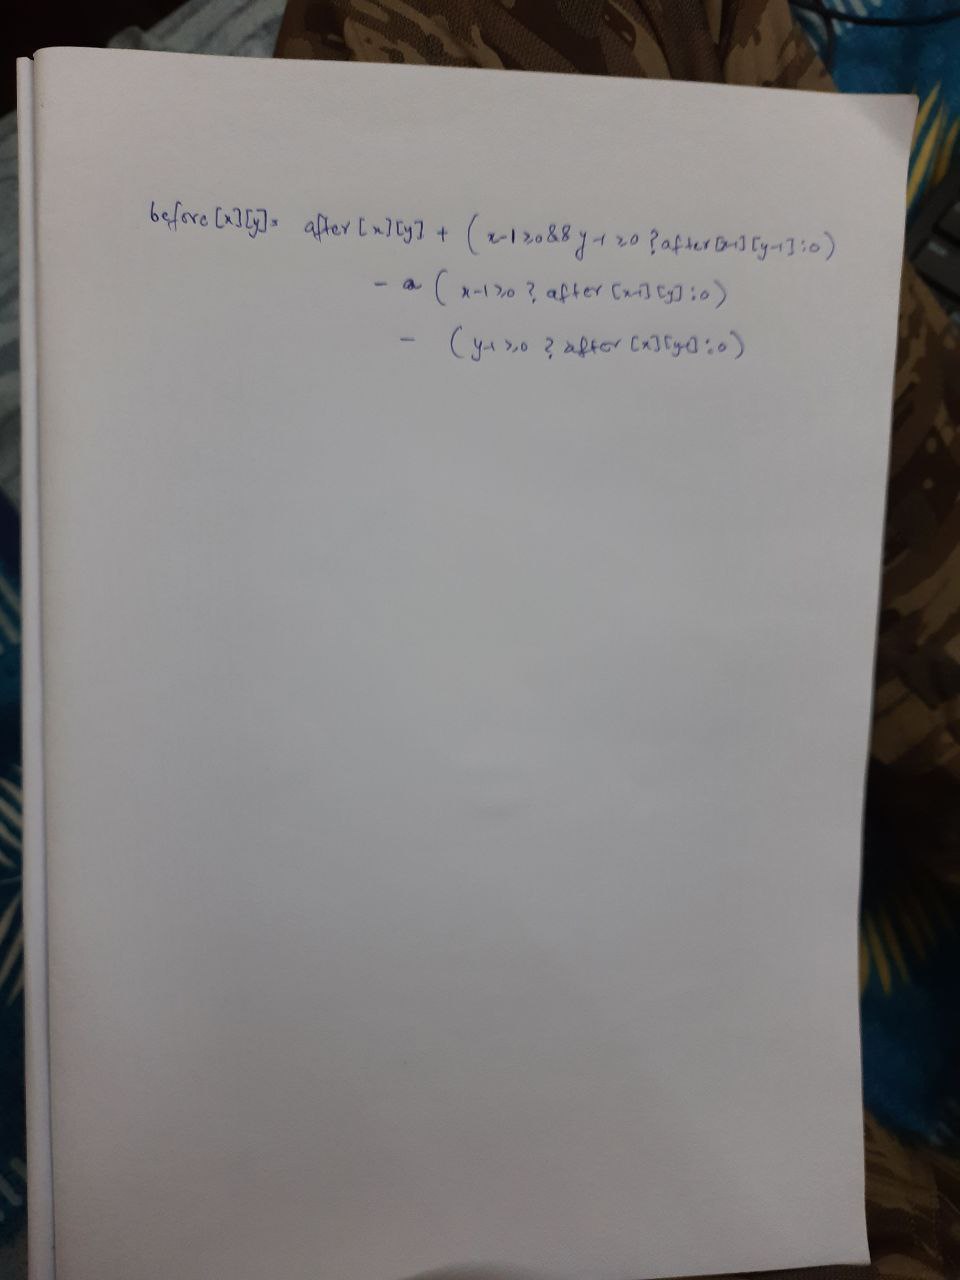 before[x][y]= after[x][y] + (x-1≥0&&y-1≥0?after[x-1][y-1]:0)
- (x-1≥0? after[x-1][y]:0)
- (y-1≥0? after[x][y-1]:0)